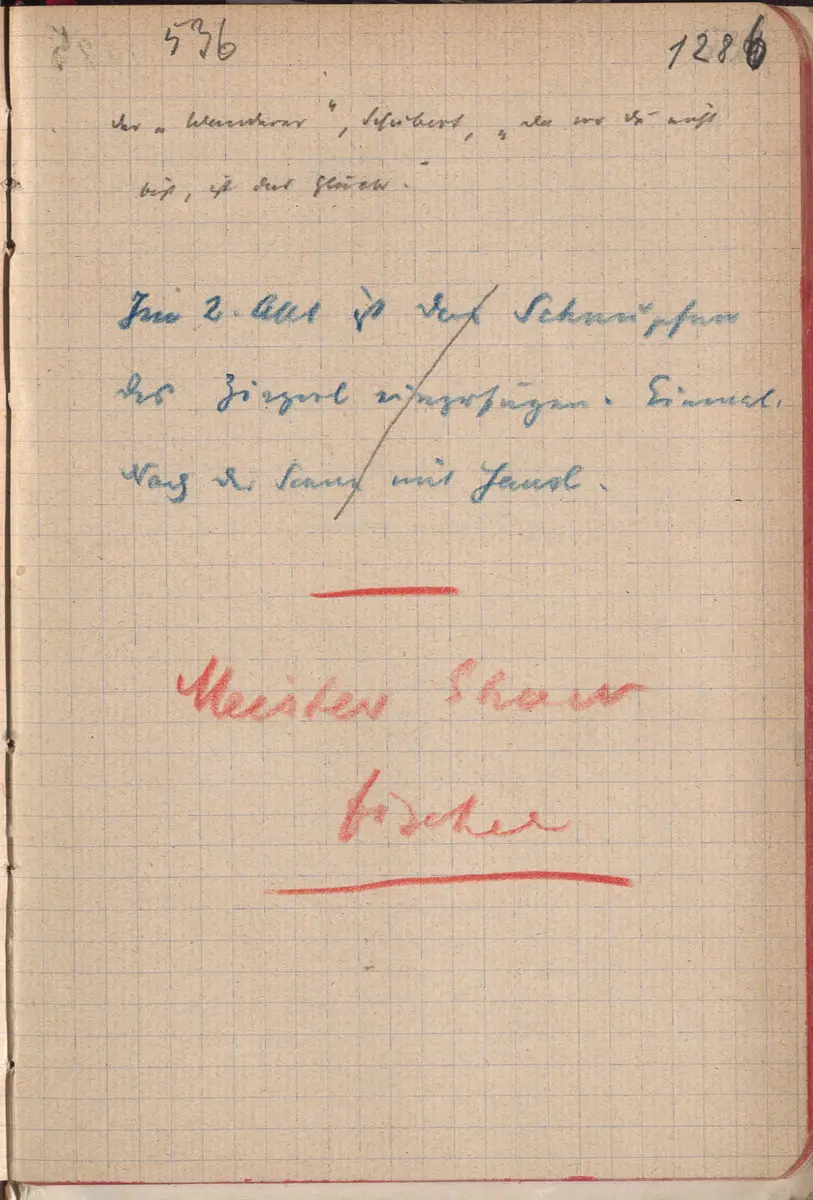 536 1286
der „Wanderer“, Schubert, „da wo du nicht
bist, ist das Glück.“
Im 2. Akt ist das Schnupfen
des Ziegerl einzufügen. Einmal.
Nach der Scene mit
Meister
Fischer